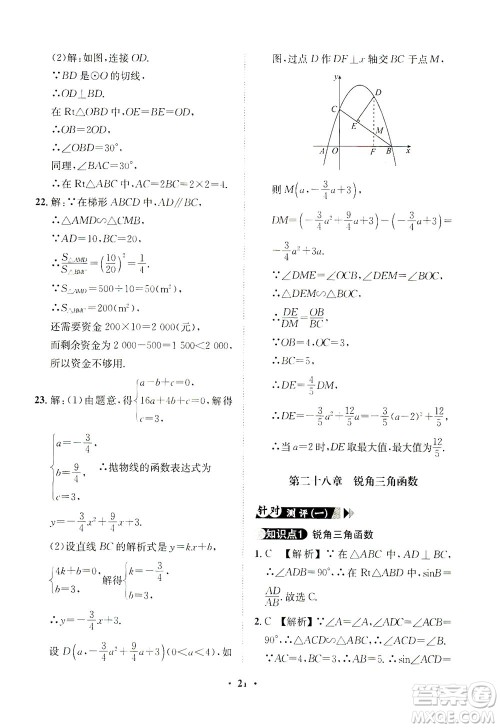 (2)解:如图,连接OD.
∵BD是⊙O的切线,
∴OD⊥BD.
∵在Rt△OBD中,OE=BE=OD,
∴OB=2OD.
∴∠OBD=30°,
同理,∠BAC=30°.
∴在Rt△ABC中,AC=2BC=2×2=4.
22.解:∵在梯形ABCD中,AD∥BC,
∴△AMD∽△CMB.
∵AD=10,BC=20,
∴S△AMD/S△BMC=(10/20)²=1/4.
∵S△AMD=500÷10=50(m²),
∴S△BMC=200 m².
还需要资金200×10=2 000(元),
而剩余资金为2 000-500=1 500<2 000,
所以资金不够用.
23.解:(1)由题意,得{a-b+c=0, 16a+4b+c=0, c=3, 解得
{a=-3/4, b=9/4, c=3, ∴抛物线的函数表达式为
y=-3/4x²+9/4x+3.
(2)设直线BC的解析式为y=kx+b,
∴{4k+b=0, b=3, 解得{k=-3/4, b=3,
∴y=-3/4x+3.
设D(a,-3/4a²+9/4a+3)(0<a<4),如
图,过点D作DF⊥x轴交BC于点M,
y
D
C
E
A O F B x
则M(a,-3/4a+3),
∴DM=(-3/4a²+9/4a+3)-(-3/4a+3)=
-3/4a²+3a.
∵∠DME=∠OCB,∠DEM=∠BOC,
∴△DEM∽△BOC,
∴DE/DM=OB/BC.
∵OB=4,OC=3,
∴BC=5,∴DE=4/5DM,
∴DE=-3/5a²+12/5a=-3/5(a-2)²+12/5,
∴当a=2时,DE取最大值,最大值是12/5.
第二十八章 锐角三角函数
针对测评(一)
知识点1 锐角三角函数
1.C 【解析】∵在△ABC中,AD⊥BC,
∴∠ADB=90°,∴在Rt△ABD中,sinB=
AD/AB.故选C.
2.C 【解析】∵∠A=∠A',∠B=∠B',∠C
=∠C'=90°,
∴△ABC∽△A'B'C',
· 21 ·
答案圈